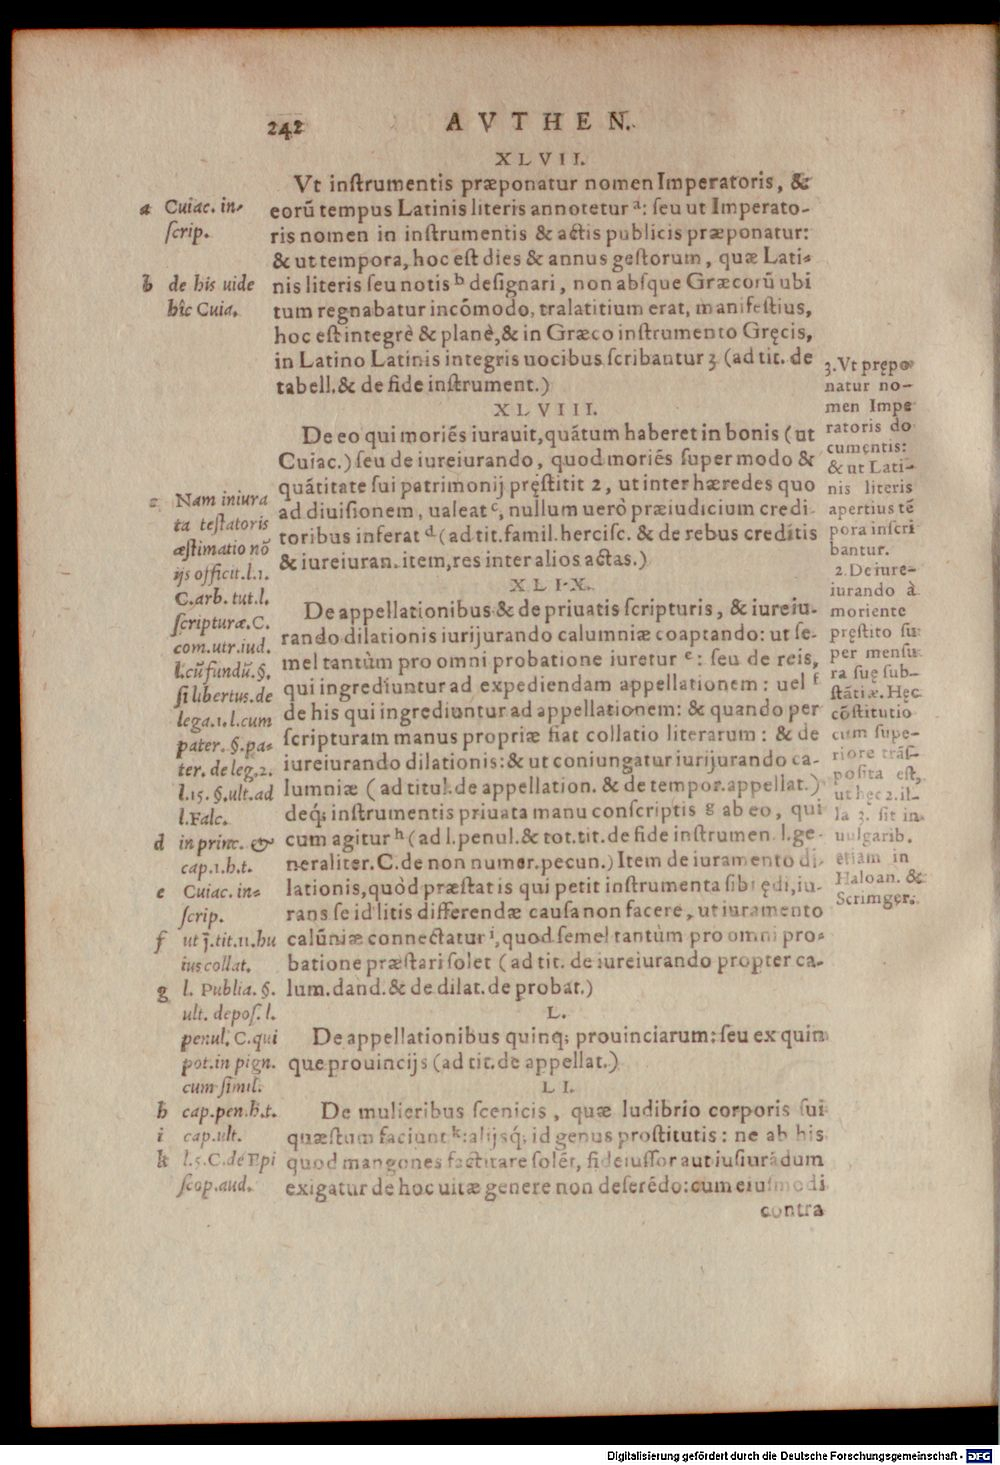 242
AVTHEN.
XLVII.
Vt inſtrumentis præponatur nomen Imperatoris, &
eorũ tempus Latinis literis annotetur a: ſeu ut Imperato-
ris nomen in inſtrumentis & actis publicis præponatur:
& ut tempora, hoc eſt dies & annus geſtorum, quæ Lati-
nis literis ſeu notis b deſignari, non abſque Græcorũ ubi
tum regnabatur incõmodo, tralatitium erat, manifeſtius,
hoc eſt integrè & planè, & in Græco inſtrumento Gręcis,
in Latino Latinis integris uocibus ſcribantur 3 (ad tit. de
tabell. & de fide inſtrument.)
XLVIII.
De eo qui moriẽs iurauit, quãtum haberet in bonis (ut
Cuiac.) ſeu de iureiurando, quod moriẽs ſuper modo &
quãtitate ſui patrimonij pręſtitit 2, ut inter hæredes quo
ad diuiſionem, ualeat c, nullum uerò præiudicium credi-
toribus inferat d (ad tit. famil. herciſc. & de rebus creditis
& iureiuran. item, res inter alios actas.)
XLIX.
De appellationibus & de priuatis ſcripturis, & iureiu-
rando dilationis iurijurando calumniæ coaptando: ut ſe-
mel tantùm pro omni probatione iuretur e: ſeu de reis,
qui ingrediuntur ad expediendam appellationem: uel f
de his qui ingrediuntur ad appellationem: & quando per
ſcripturam manus propriæ fiat collatio literarum: & de
iureiurando dilationis: & ut coniungatur iurijurando ca-
lumniæ (ad titul. de appellation. & de tempor. appellat.)
deq; inſtrumentis priuata manu conſcriptis g ab eo, qui
cum agitur h (ad l. penul. & tot. tit. de fide inſtrumen. l. ge-
neraliter. C. de non numer. pecun.) Item de iuramento di-
lationis, quòd præſtat is qui petit inſtrumenta ſibi ędi, iu-
rans ſe id litis differendæ cauſa non facere, ut iuramento
calũniæ connectatur i, quod ſemel tantùm pro omni pro-
batione præſtari ſolet (ad tit. de iureiurando propter ca-
lum. dand. & de dilat. de probat.)
L.
De appellationibus quinq; prouinciarum: ſeu ex quin
que prouincijs (ad tit. de appellat.)
LI.
De mulieribus ſcenicis, quæ ludibrio corporis ſui
quæſtum faciunt k: alijsq́; id genus proſtitutis: ne ab his
quod mangones factitare ſolẽt, fideiuſſor aut iuſiurãdum
exigatur de hoc uitæ genere non deſerẽdo: cum eiuſmodi
contra
a Cuiac. in-
ſcrip.
b de his uide
hîc Cuia.
c Nam iniura
ta teſtatoris
æſtimatio nõ
ijs officit. l. 1.
C. arb. tut. l.
ſcripturæ. C.
com. utr. iud.
l. cũ fundũ. §.
ſi libertus. de
lega. 1. l. cum
pater. §. pa-
ter. de leg. 2.
l. 15. §. ult. ad
l. Falc.
d in princ. &
cap. 1. h. t.
e Cuiac. in-
ſcrip.
f ut j̃. tit. 11. hu
ius collat.
g l. Publia. §.
ult. depoſ. l.
penul. C. qui
pot. in pign.
cum ſimil.
h cap. pen. h. t.
i cap. ult.
k l. 5. C. de Epi
ſcop. aud.
3. Vt prępo
natur no-
men Impe
ratoris do
cumentis:
& ut Lati-
nis literis
apertius tẽ
pora inſcri
bantur.
2. De iure-
iurando à
moriente
pręſtito ſu
per menſu
ra ſuę ſub-
ſtãtiæ. Hęc
cõſtitutio
cum ſupe-
riore trãſ-
poſita eſt,
ut hęc 2. il-
la 3. ſit in
uulgarib.
etiam in
Haloan. &
Scrimger.
Digitalisierung gefördert durch die Deutsche Forschungsgemeinschaft - DFG